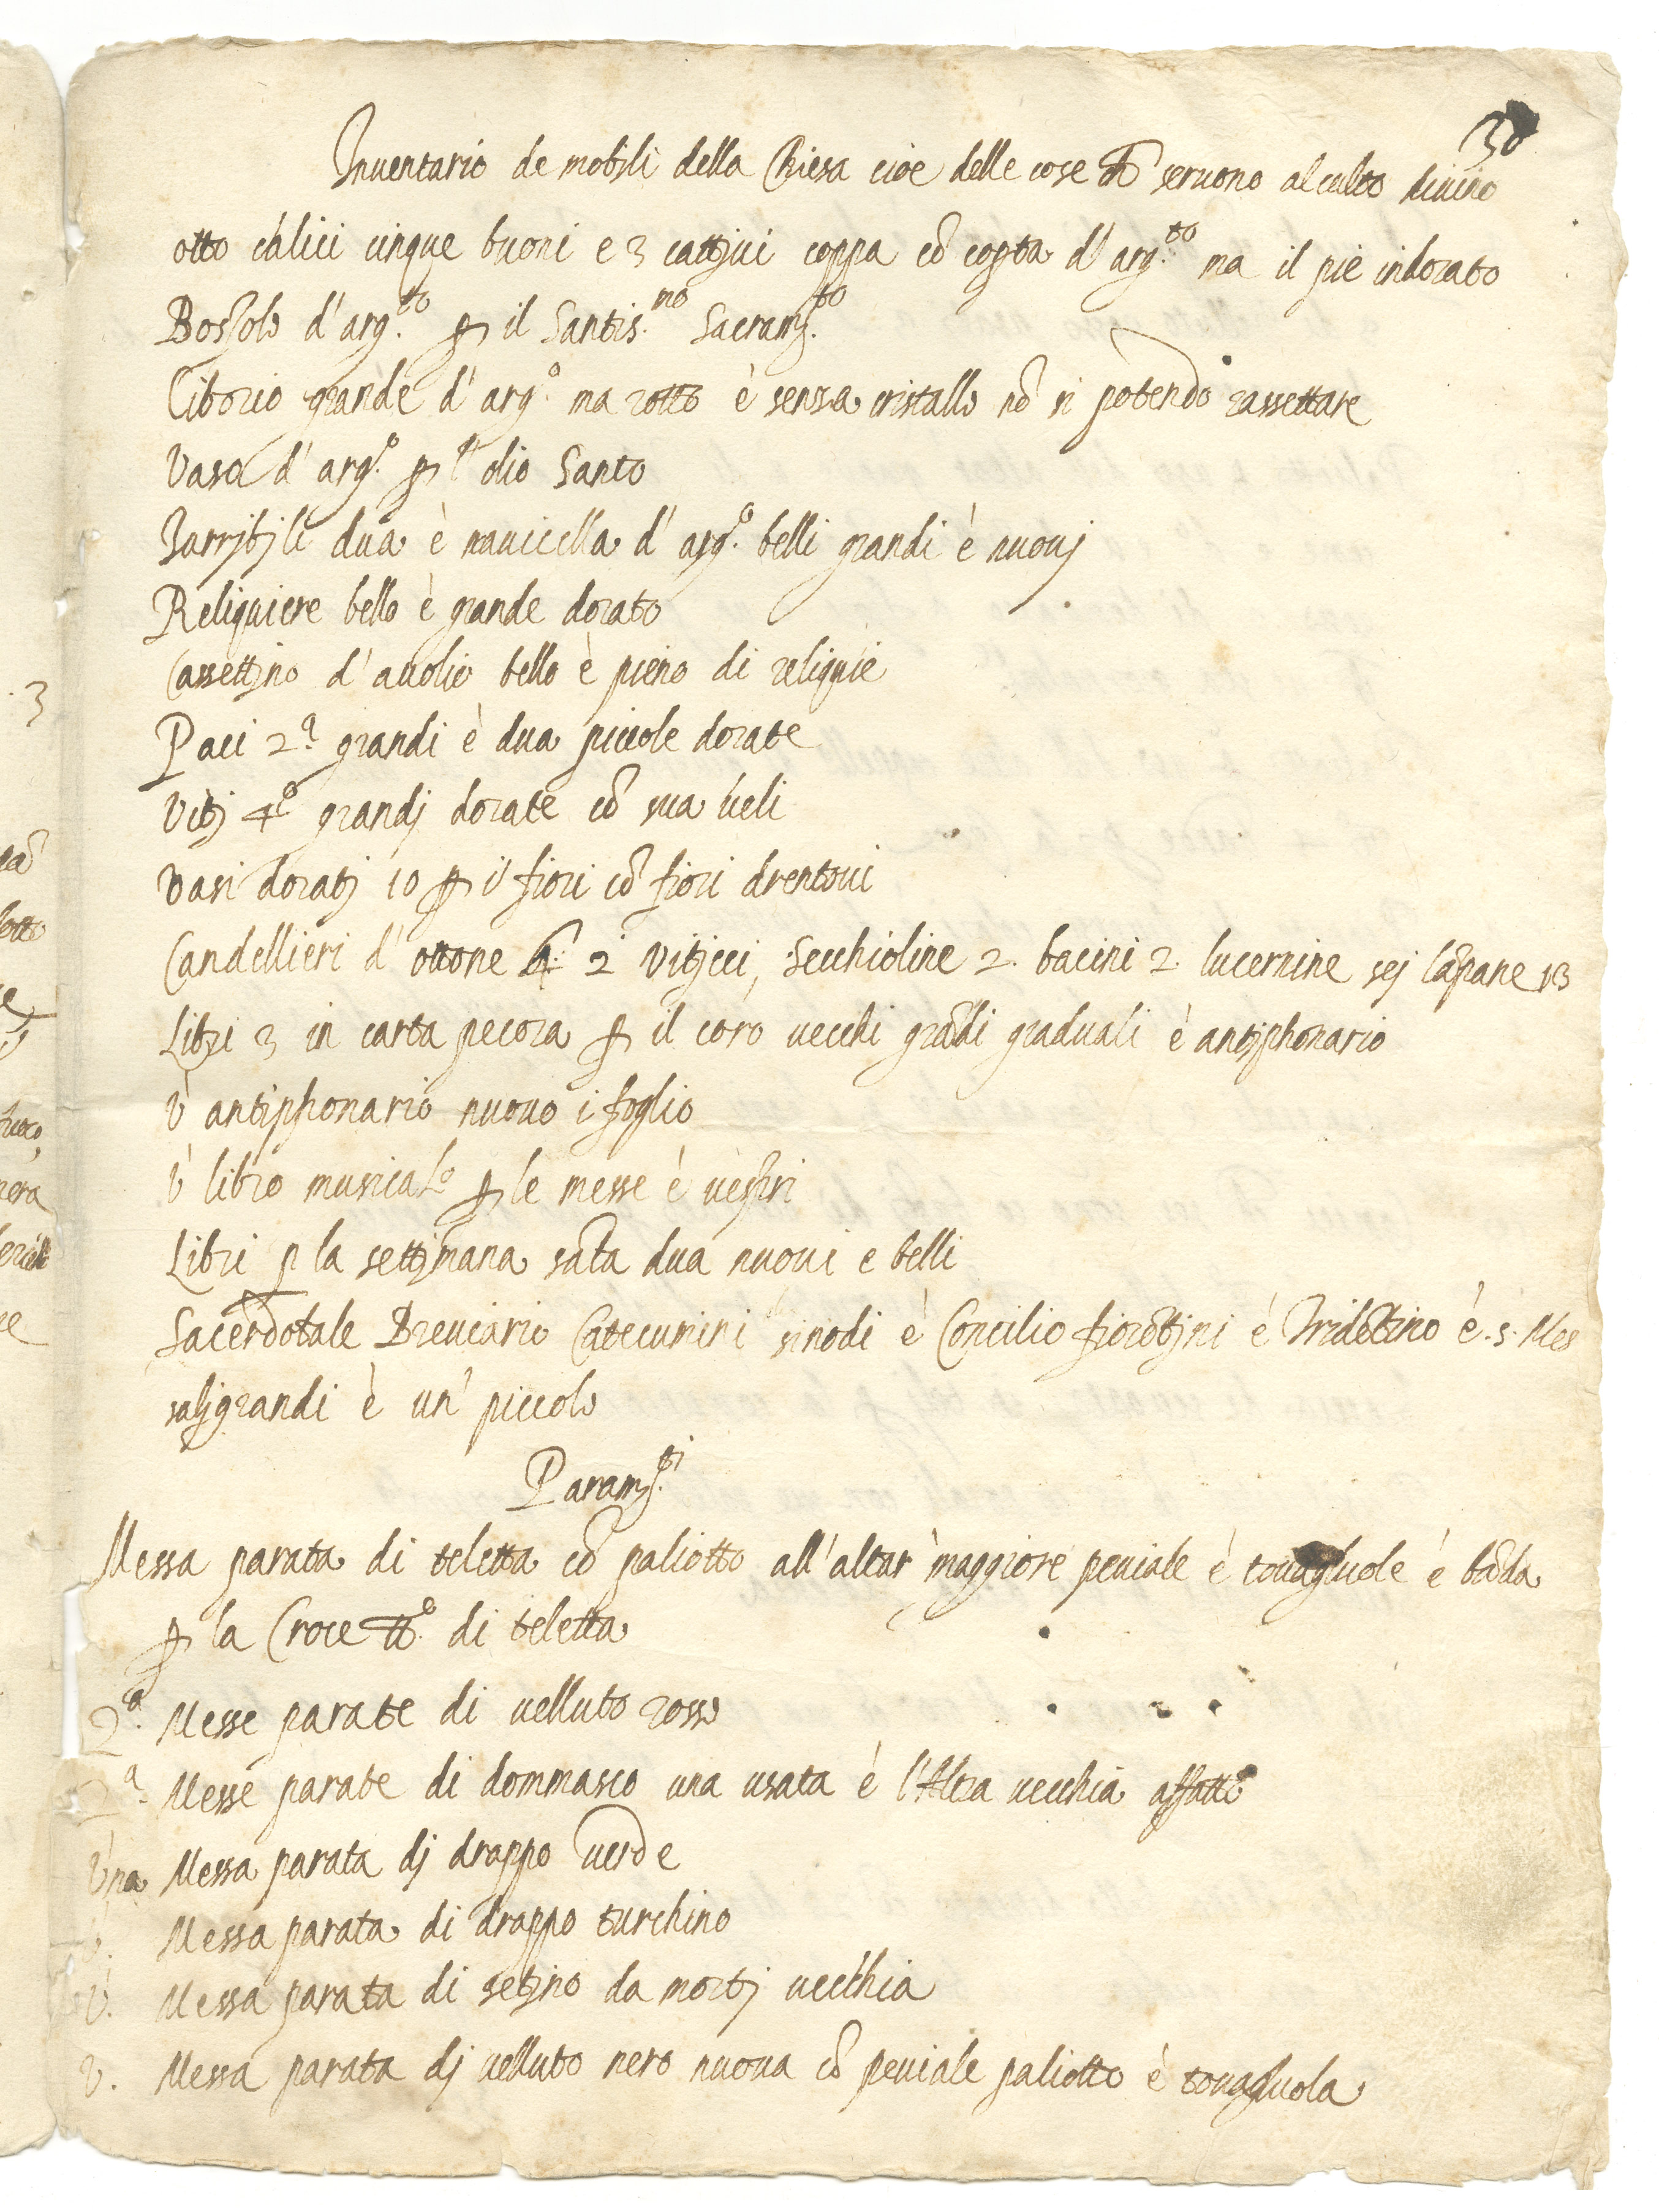 30
Inuentario de mobili della Chiesa cioe delle cose ch̃ seruono al culto diuino
otto calici cinque buoni e 3 cattiui coppa cō copta d'arg.to ma il piè indorato
Bossolo d'arg.to ꝑ il Santis.mo Sacram.to
Ciborio grande d'arg.o ma rotto è senza cristallo nō si potendo rassettare
Vaso d'arg.o ꝑ l'olio Santo
Turribili dua è nauicella d'arg.o belli grandi è nuouj
Reliquiere bello è grande dorato
Cassettino d'auolio bello è pieno di reliquie
Paci 2.a grandi è dua piccole dorate
Vitj 4.o grandj dorate cō sua ueli
Vasi doratj 10 ꝑ i fiori cō fiori drentoui
Candellieri d'ottone 2 Viticci, Secchioline 2. bacini 2. lucernine sej cāpane 13
Libri 3 in carta pecora ꝑ il coro uecchi grādi graduali è antiphonario
V antiphonario nuouo i foglio
V libro musicalo ꝑ le messe è uespri
Libri ꝑ la settimana sāta dua nuoui e belli
Sacerdotale Breuiario Catecumini sinodi è Concilio fiorētjni è Tridētino è .5. Mes
salj grandi è un' piccolo
Param.ti
Messa parata di teletta cō paliotto all'altar maggiore peuiale è touagluole è bāda
ꝑ la Croce tt.o di teletta
2.a Messe parate di uelluto rosso
2.a Messe parate di dommasco una usata è l'Altra uecchia affatto
Vna Messa parata dj drappo uerde
V. Messa parata di drappo turchino
V. Messa parata di setino da mortj uecchia
V. Messa parata dj uelluto nero nuoua cō peuiale paliotto è touagluola